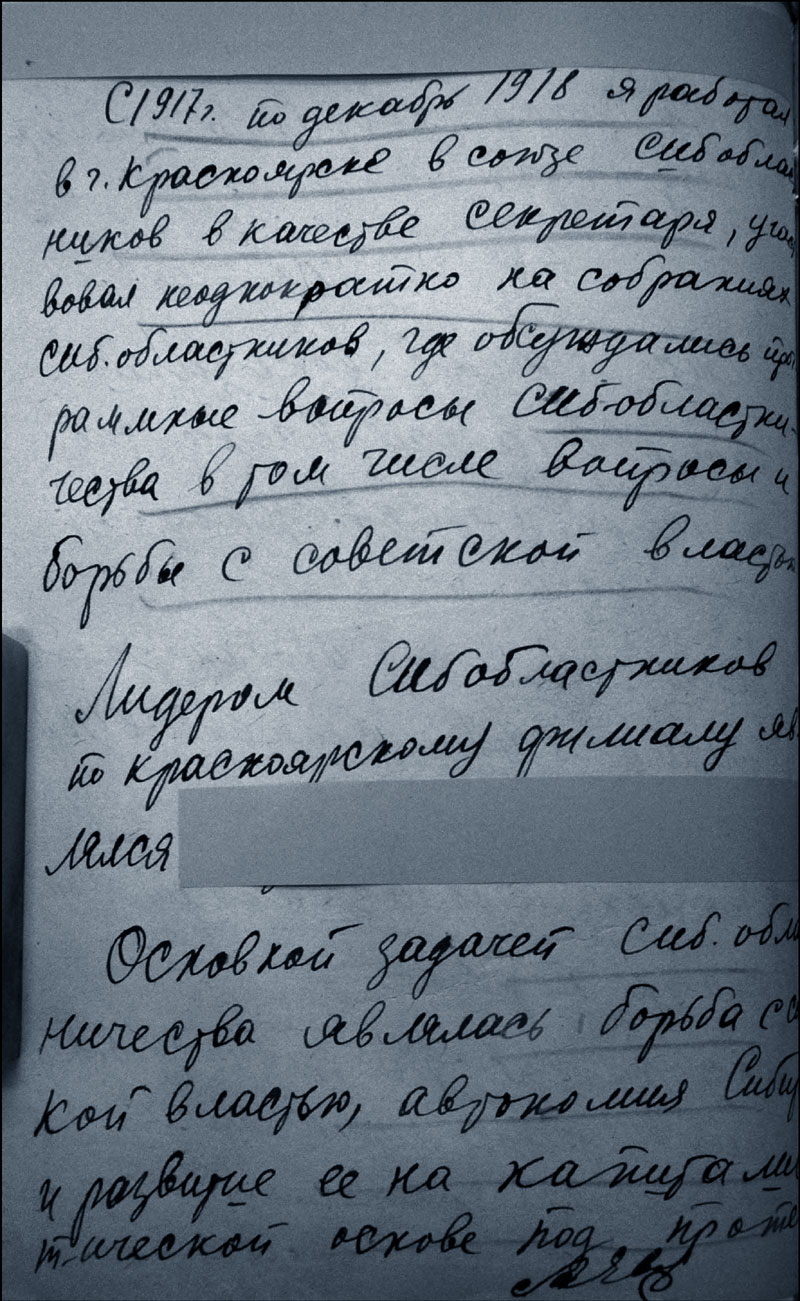 С 1917г. по декабрь 1918 я работал
в г. Красноярске в союзе Сиб област
ников в качестве секретаря, участ
вовал неоднократно на собраниях
сиб. областников, где обсуждались прог
раммные вопросы сиб-областни-
чества в том числе вопросы и
борьбы с советской властью
Лидером Сибобластников
по красноярскому филиалу яв
лялся
Основной задачей сиб. обла
ничества являлась борьба с со
кой властью, автономия Сибир
и развитие ее на капитали
тической основе под проте